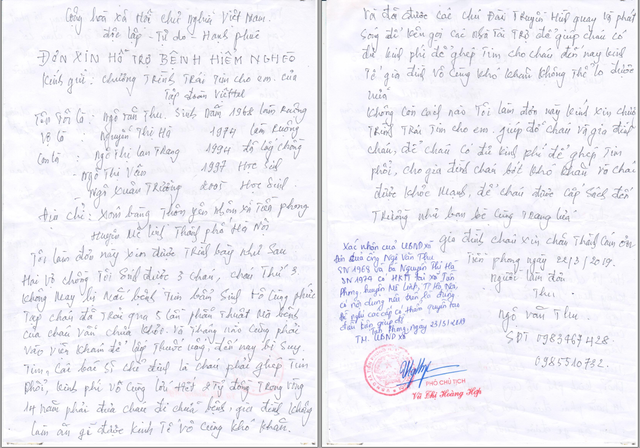 Cộng hòa xã Hội chủ nghĩa Việt Nam
độc lập - Tự do - Hạnh phúc
ĐƠN XIN HỖ TRỢ BỆNH HIỂM NGHÈO
Kính gửi: chương Trình Trái Tim cho em. của
Tập đoàn Viettel
Tên Tôi là: Ngô Văn Thu. Sinh năm 1968 làm Ruộng
Vợ là: Nguyễn Thị Hạ 1974 làm Ruộng
Con là: Ngô Thị Lan Trang 1994 đã lấy chồng
Ngô Thị Vân 1997 Học Sinh
Ngô Xuân Trường 2005 Học Sinh.
Địa chỉ: Xóm bàng Thôn yên Nhân xã Tiền phong
Huyện Mê linh Thành phố Hà Nội
Tôi làm đơn này xin được Trình bày như Sau
Hai Vợ chồng Tôi Sinh được 3 cháu, cháu Thứ 3
không may bị mắc bệnh Tim bẩm Sinh Vô Cùng phức
Tạp cháu đã Trải qua 5 lần phẫu Thuật mà bệnh
của cháu Vẫn chưa khỏi. Và Tháng nào Cũng phải
Vào Viện khám để lấy Thuốc uống, đến nay bị Suy
Tim, Các bác Sĩ chỉ định là cháu phải ghép Tim
Phổi, kinh phí Vô Cùng lớn Hết Tỷ đồng Trong Vòng
14 năm phải đưa cháu đi chữa bệnh, gia đình không
làm ăn gì được kinh Tế Vô Cùng khó khăn.
Và đã được các chú Đài Truyền Hình quay Và phát
Sóng để kêu gọi các nhà Tài Trợ để giúp cháu có
đủ kinh phí để ghép Tim cho cháu đến nay kinh
Tế gia đình Vô Cùng khó khăn không Thể lo được
nữa
không Còn cách nào Tôi làm đơn này kính xin chương
Trình Trái Tim cho em, giúp đỡ cháu Và gia đình
cháu, để cháu Có đủ kinh phí để ghép Tim
phổi, cho gia đình cháu bớt khó khăn Và cháu
được khỏe mạnh, để cháu được Cắp Sách đến
Trường như bạn bè Cùng Trang lứa
gia đình cháu xin chân Thành Cảm Ơn
Tiền phong ngày 22/3/2019.
Người làm đơn
Thu
Ngô Văn Thu.
SĐT 0983467428
0985510732
Xác nhận của UBND xã
Đơn của ông Ngô Văn Thu
SN 1968 và bà Nguyễn Thị Hạ
SN 1974 có HKTT tại xã Tiền
Phong, huyện Mê Linh, TP Hà Nội,
có nội dung nêu trên là đúng.
Đề nghị các cấp có thẩm quyền tạo
điều kiện giúp đỡ
Tiền Phong, ngày 23/3/2019
TM. UBND xã
PHÓ CHỦ TỊCH
Vũ Thị Hoàng Hiệp